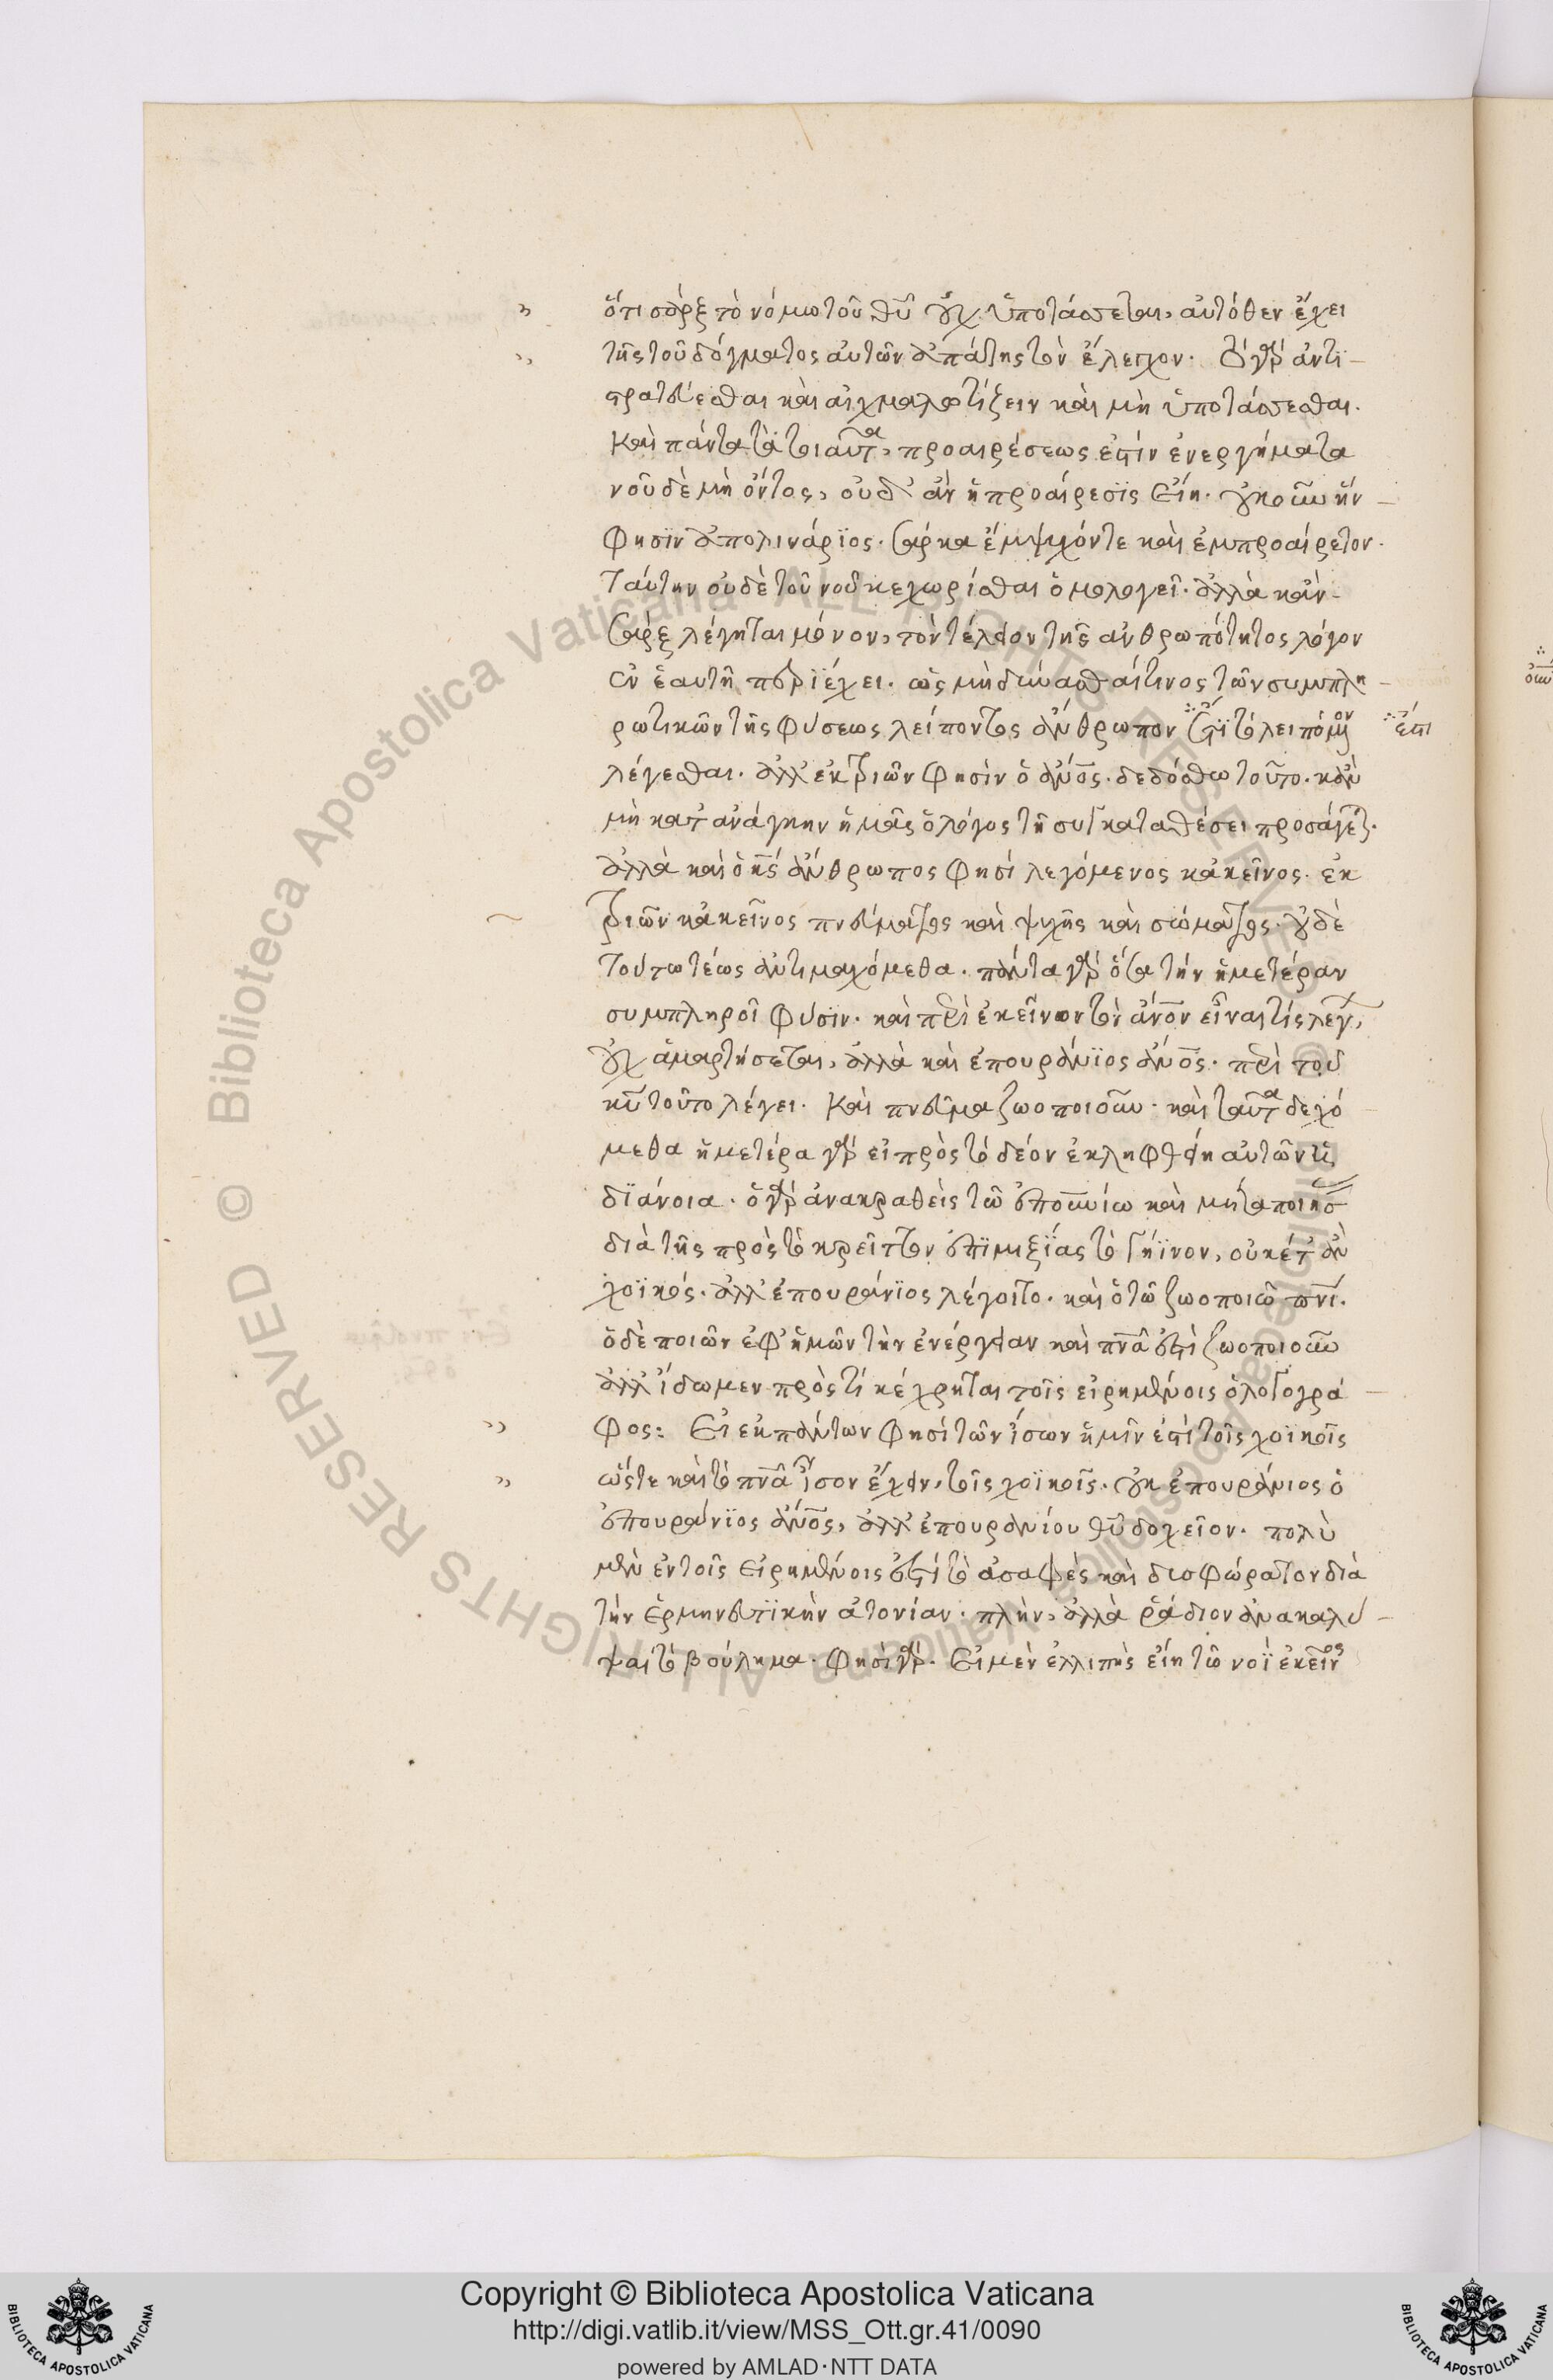 ὅτι σὰρξ τὸ νόμω τοῦ θῦ οὐχ ὑποτάσσεται, αὐτόθεν ἔχει
τῆς τοῦ δόγματος αὐτῶν ἀπάτης τὸν ἔλεγχον. τὸ γὰρ ἀντι-
στρατεύεσθαι καὶ αἰχμαλωτίζειν καὶ μὴ ὑποτάσσεσθαι.
Καὶ πάντα τὰ τοιαῦτα, προαιρέσεως ἐστὶν ἐνεργήματα
νοῦ δὲ μὴ ὄντος, οὐδ' ἂν ἡ προαίρεσϊς εἴη. οὐκοῦν ἣν
φησὶν ἀπολινάρϊος. σάρκα ἔμψυχόν τε καὶ ἐμπροαίρετον.
Ταύτην οὐδὲ τοῦ νοῦ κεχωρίσθαι ὁμολογεῖ. ἀλλὰ κἂν
σὰρξ λέγηται μόνον, τὸν τέλειον τῆς ἀνθρωπότητος λόγον
ἐν ἑαυτῆ περϊέχει. ὡς μὴ δύνασθαί τινος τῶν συμπλη
ρωτικῶν τῆς φύσεως λείποντος ἄνθρωπον ἔτϊ τὸ λειπόμενον ἐστι
λέγεσθαι. ἀλλ' ἐκ τριῶν φησὶν ὁ ἄνος. δεδόσθω τοῦτο. κἂν
μὴ κατ' ἀνάγκην ἡμᾶς ὁ λόγος τῆ συγκαταθέσει προσάγει.
ἀλλὰ καὶ ὁ κς ἄνθρωπος φησὶ λεγόμενος κἀκεῖνος. ἐκ
τριῶν κἀκεῖνος πνεύματος καὶ ψυχῆς καὶ σώματος. οὐδὲ
τούτω τέως ἀντιμαχόμεθα. πάντα γὰρ ὅσα τὴν ἡμετέραν
συμπληροῖ φύσϊν. καὶ περὶ ἐκεῖνον τὸν ἄνον εἶναι τίς λέγων,
οὐχ ἁμαρτήσεται, ἀλλὰ καὶ ἐπουράνϊος ἄνος. περὶ τοῦ
κῦ τοῦτο λέγει. Καὶ πνεῦμα ζωοποιοῦν. καὶ ταῦτα δεχό
μεθα ἡμετέρα γὰρ εἰ πρὸς τὸ δέον ἐκληφθείη αὐτῶν τίς
δϊάνοια. ὁ γὰρ ἀνακραθεὶς τῶ ἐπουνίω καὶ μεταποιήσας
διὰ τῆς πρὸς τὸ κρεῖττον ἐπϊμιξίας τὸ γήϊνον, οὐκέτ' ἂν
χοϊκός. ἀλλ' ἐπουράνϊος λέγοιτο. καὶ ὁ τῶ ζωοποιῶ πνι.
ὁ δὲ ποιῶν ἐφ' ἡμῶν τὴν ἐνέργειαν καὶ πνᾶ ἐστὶ ζωοποιοῦν
ἀλλ' ἴδωμεν πρὸς τί κέχρηται τοῖς εἰρημένοις ὁ λογογρά
φος: Εἰ ἐκ πάντων φησὶ τῶν ἴσων ἡμῖν ἐστὶ τοῖς χοϊκοῖς
ὥστε καὶ τὸ πνᾶ ἴσον ἔχειν, τοῖς χοϊκοῖς. οὐκ ἐπουράνιος ὁ
ἐπουράνϊος ἄνος, ἀλλ' ἐπουρανίου θῦ δοχεῖον. πολὺ
μὲν ἐν τοῖς εἰρημένοις ἐστὶ τὸ ἀσαφὲς καὶ δυσφώρατον διὰ
τὴν ἑρμηνευτϊκὴν ἀτονίαν. πλὴν, ἀλλὰ ῥάδιον ἀνακαλύ
ψαι τὸ βούλημα. φησὶ γάρ. Εἰ μὲν ἐλλιπὴς εἴη τῶ νοῒ ἐκεῖνος
Copyright © Biblioteca Apostolica Vaticana
http://digi.vatlib.it/view/MSS_Ott.gr.41/0090
powered by AMLAD·NTT DATA